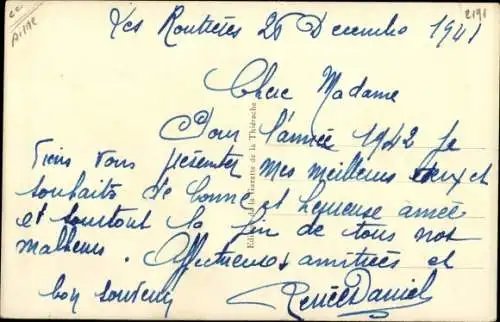 Les Routières 26 Décembre 1941
2191
AISNE
Chere Madame
Pour l'année 1942 Je
viens vous présenter mes meilleurs voeux et
souhaits de bonne et heureuse année
et surtout la fin de tous nos
malheurs. Affectueuses amitiées et
bon souvenir
Renée Daniel
de la Gazette de la Thiérache